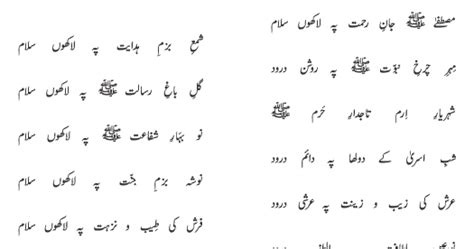 مصطفےٰ ﷺ جانِ رحمت پہ لاکھوں سلام
شمعِ بزمِ ہدایت پہ لاکھوں سلام
مہرِ چرخِ نبوّت ﷺ پہ روشن درود
گلِ باغِ رسالت ﷺ پہ لاکھوں سلام
شہریارِ اِرم تاجدارِ حَرم ﷺ
نو بہارِ شفاعت ﷺ پہ لاکھوں سلام
شبِ اسریٰ کے دولھا پہ دائم درود
نوشہ بزمِ جنّت پہ لاکھوں سلام
عرش کی زیب و زینت پہ عرشی درود
فرش کی طِیب و نزہت پہ لاکھوں سلام